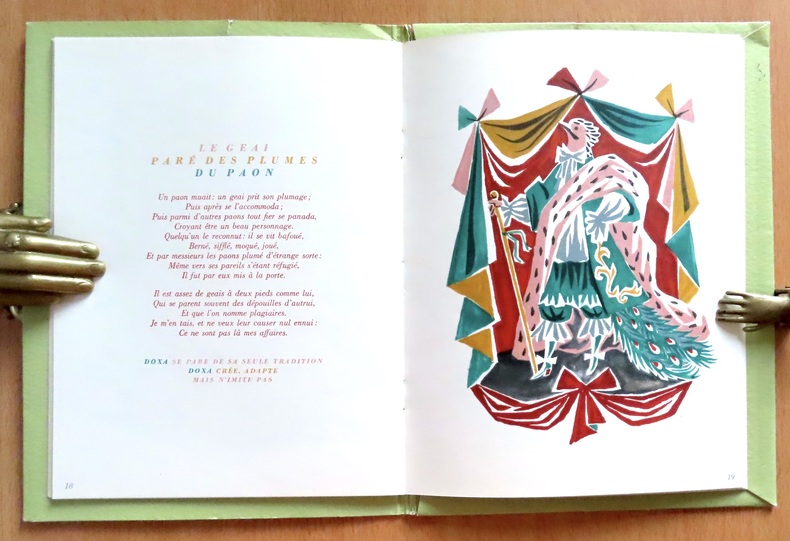 LE GEAI
PARÉ DES PLUMES
DU PAON
Un paon muait : un geai prit son plumage ;
Puis après se l'accommoda ;
Puis parmi d'autres paons tout fier se panada,
Croyant être un beau personnage.
Quelqu'un le reconnut : il se vit bafoué,
Berné, sifflé, moqué, joué,
Et par messieurs les paons plumé d'étrange sorte :
Même vers ses pareils s'étant réfugié,
Il fut par eux mis à la porte.
Il est assez de geais à deux pieds comme lui,
Qui se parent souvent des dépouilles d'autrui,
Et que l'on nomme plagiaires.
Je m'en tais. et ne veux leur causer nul ennui :
Ce ne sont pas là mes affaires.
DOXA SE PARE DE SA SEULE TRADITION
DOXA CRÉE, ADAPTE
MAIS N'IMITE PAS
18
19